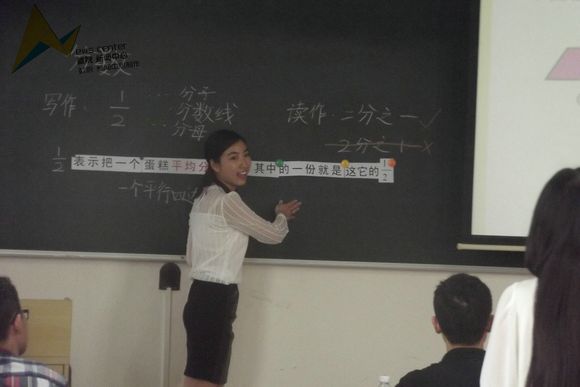 ews center
新闻中心
数
写作：
1
2
分子
分数线
分母
读作：二分之一✓
2分之1×
1
2
表示把一个蛋糕平均分
其中的一份就是这它的
1
2
一个平行四边